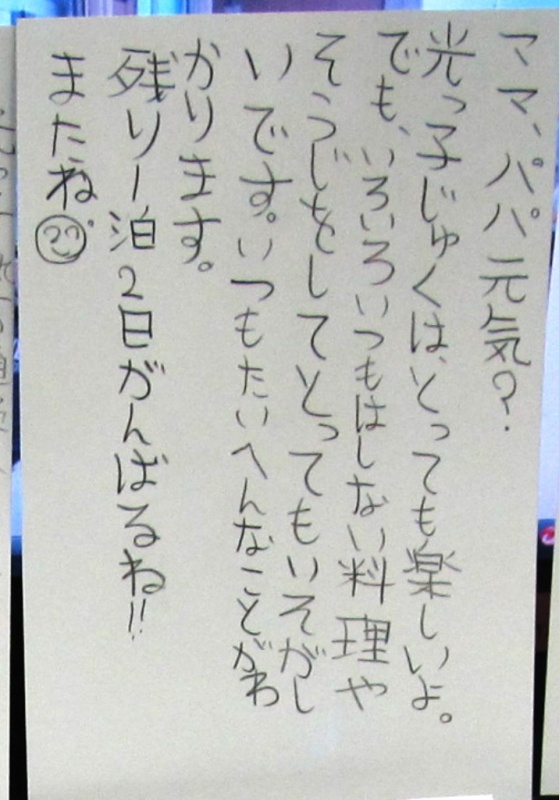 ママ、パパ元気？
光っ子じゅくは、とっても楽しいよ。
でも、いろいろいつもはしない料理や
そうじをしてとってもいそがし
いです。いつもたいへんなことがわ
かります。
残り一泊2日がんばるね!!
またね